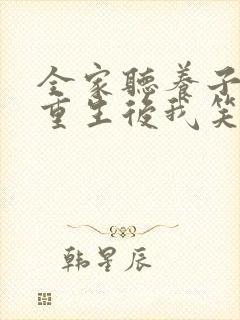 全家聽養子
重生後我笑
韩星辰